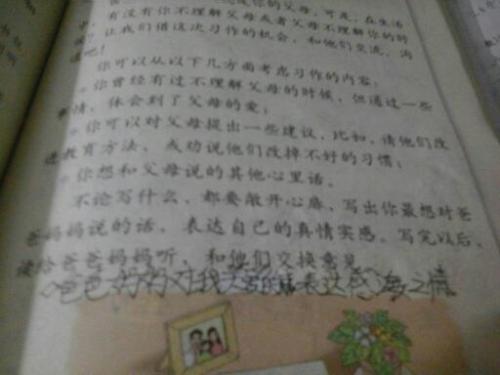 你的父母,可是,在生活
中,有没有你不理解父母或者父母不理解你的时
候?让我们借这次习作的机会,和他们交流、沟
通吧!
你可以从以下几方面考虑习作的内容:
你曾经有过不理解父母的时候,但通过一些
事情,体会到了父母的爱;
你可以对父母提出一些建议,比如,请他们改
进教育方法,或劝说他们改掉不好的习惯;
你想和父母说的其他心里话。
不论写什么,都要敞开心扉,写出你最想对爸
爸妈妈说的话,表达自己的真情实感。写完以后,
读给爸爸妈妈听,和他们交换意见。
爸爸妈妈对我 表达 之情